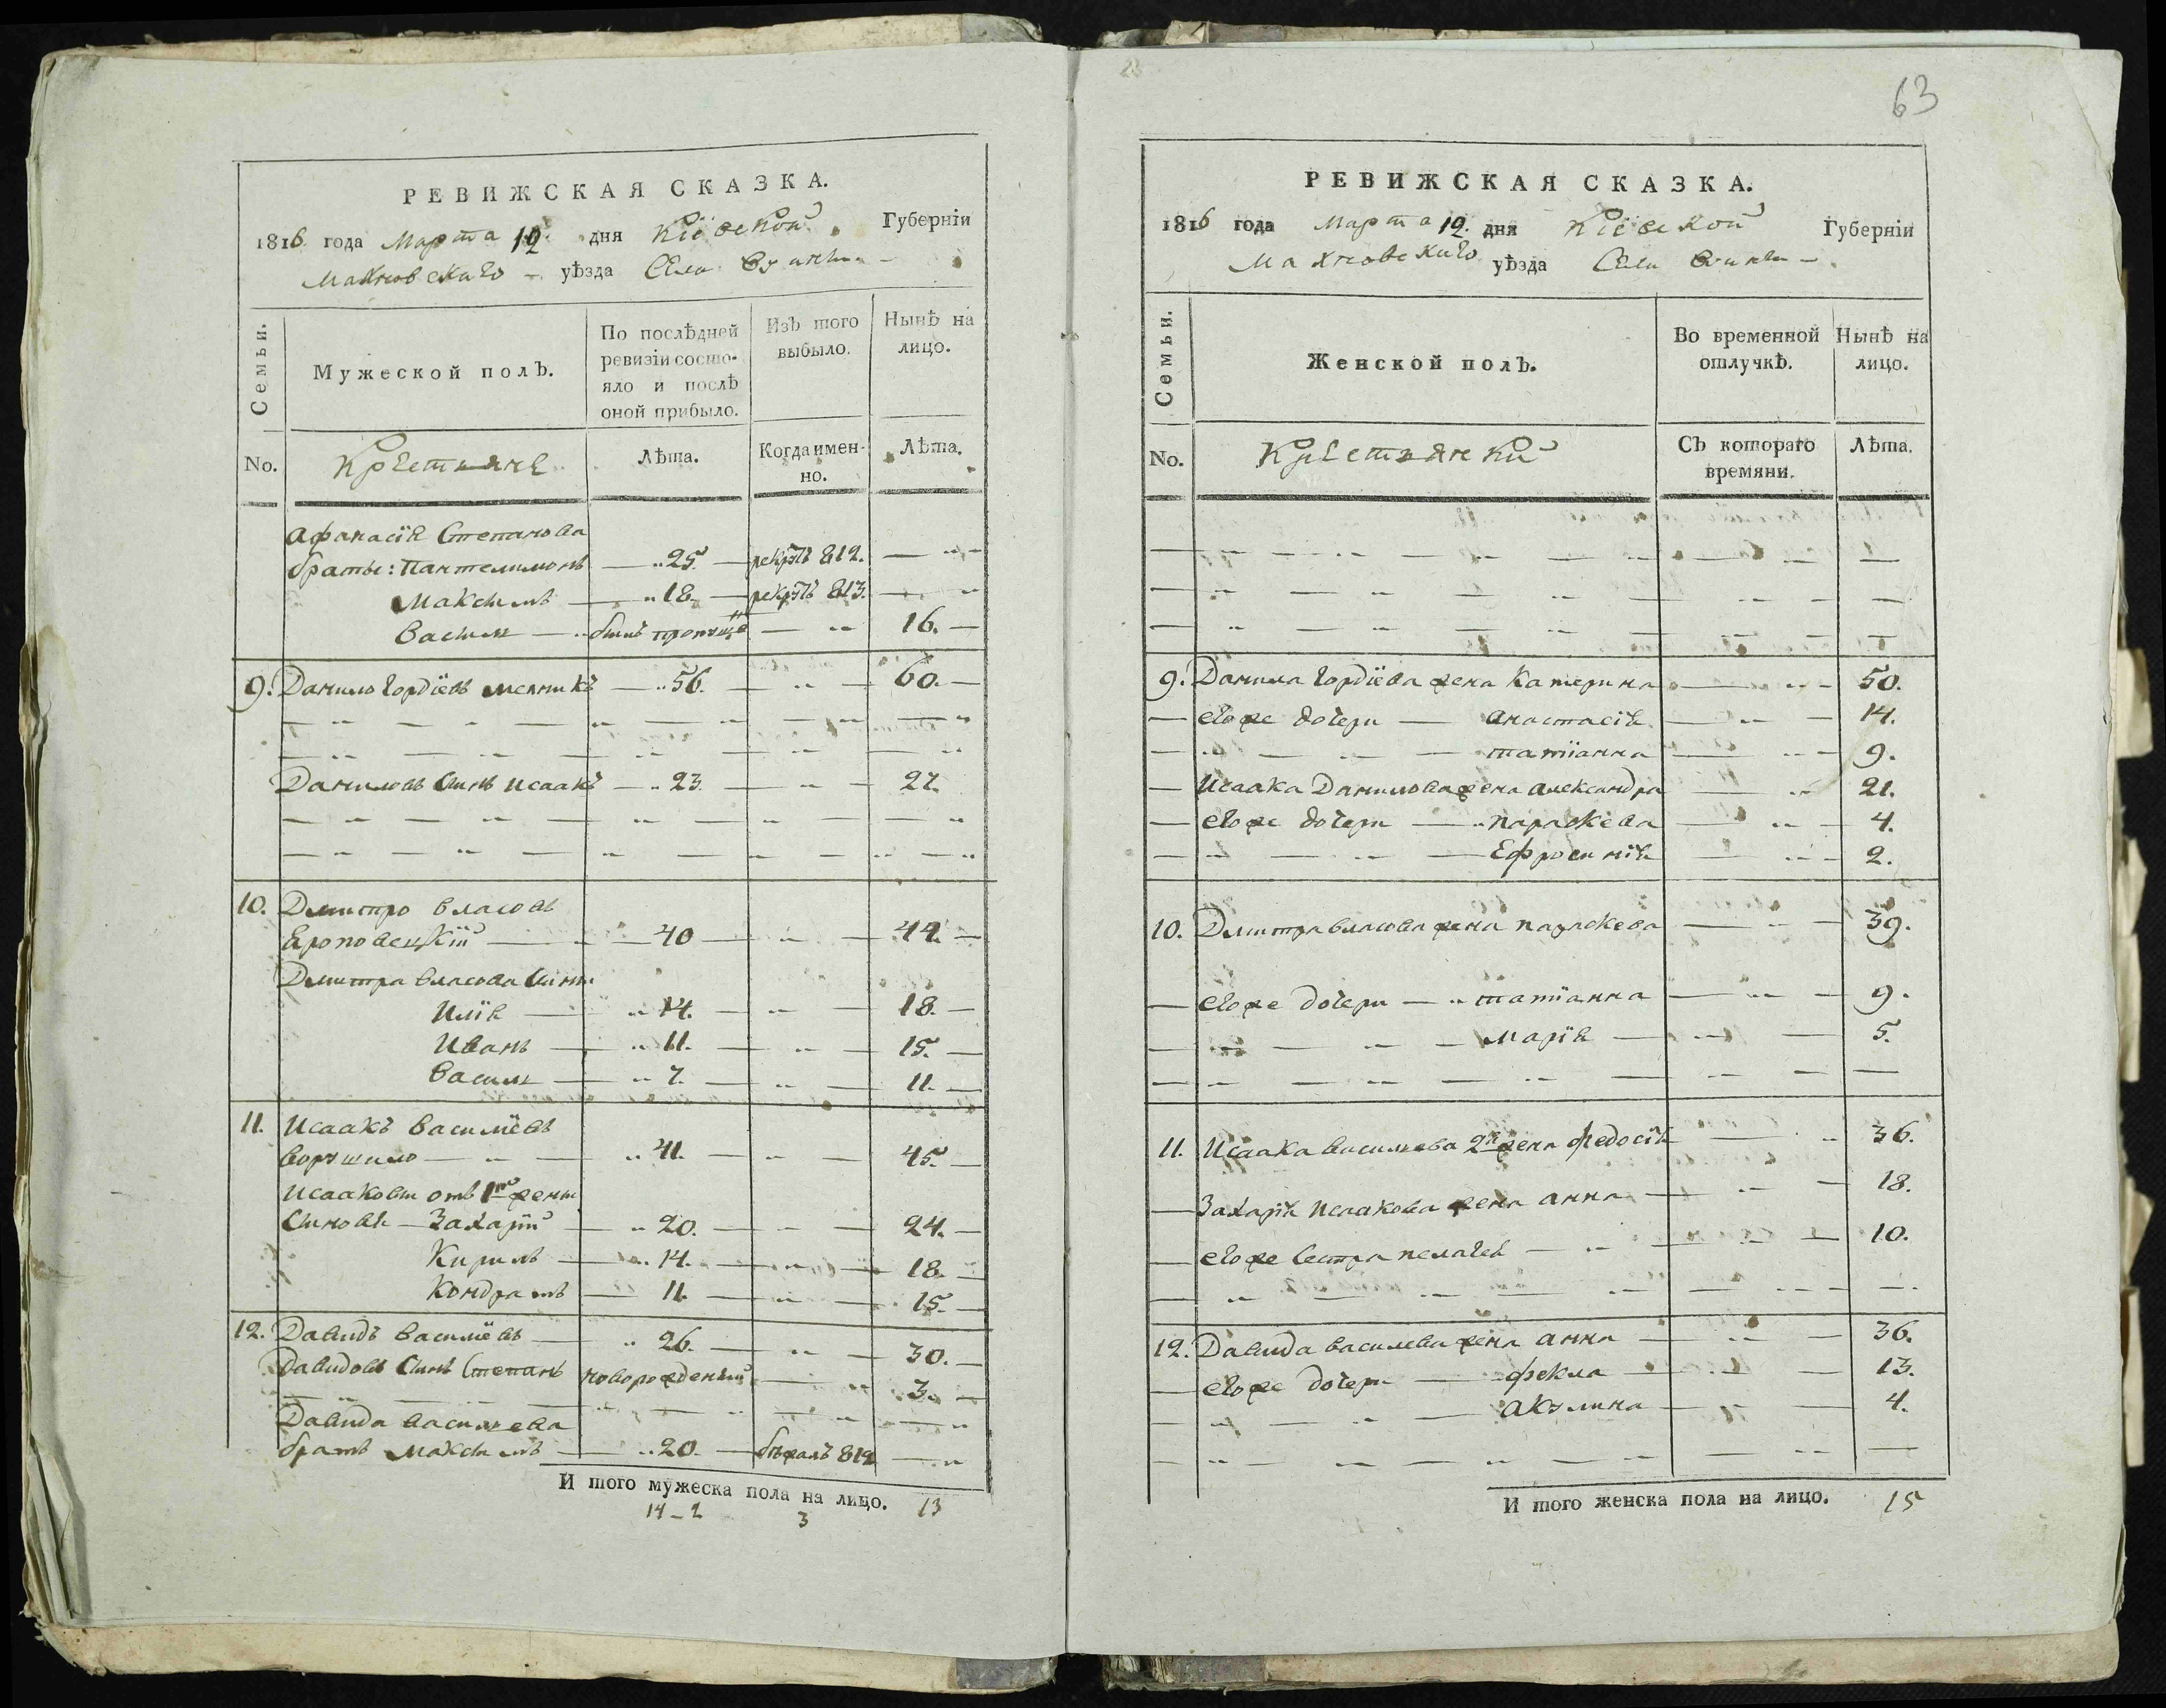 РЕВИЖСКАЯ СКАЗКА.
1816 года Марта 12 дня Кіевской Губерніи
Махновскаго уѣзда Села
Семьи.
Мужеской полъ.
По послѣдней ревизіи состояло и послѣ оной прибыло.
Изъ того выбыло.
Нынѣ на лицо.
No. Крестьяне Лѣта. Когда именно. Лѣта.
Афанасія Степанова
братья: Пантелимонъ 25. рекрутъ 812.
Максимъ 18. рекрутъ 813.
Васили былъ пропущенъ 16.
9. Данило Гордіевъ мелникъ 56. 60.
Даниловъ синъ Исаакъ 23. 27.
10. Дмитро Власовъ
Ероповецкій 40 44.
Дмитра Власова сини
Илія 14. 18.
Иванъ 11. 15.
Васили 7. 11.
11. Исаакъ Василіевъ
Ворушило 41. 45.
Исаакови отъ 1й жени
синовя Захарій 20. 24.
Кирилъ 14. 18.
Кондратъ 11. 15.
12. Давидъ Василіевъ 26. 30.
Давидовъ синъ Степанъ новорожденный 3.
Давида Василева
братъ Максимъ 20. бѣжалъ 812
И того мужеска пола на лицо. 13
14 - 2 3
63
РЕВИЖСКАЯ СКАЗКА.
1816 года Марта 12. дня Кіевской Губерніи
Махновскаго уѣзда Села
Семьи.
Женской полъ.
Во временной отлучкѣ.
Нынѣ на лицо.
No. Крестьянки Съ котораго времяни. Лѣта.
9. Данила Гордіева жена Катерина 50.
его же дочери Анастасія 14.
Татіанна 9.
Исаака Данилова жена Александра 21.
его же дочери Параскева 4.
Ефросинія 2.
10. Дмитра Власова жена Параскева 39.
его же дочери Татіанна 9.
Марія 5.
11. Исаака Василева 2я жена Федосія 36.
Захарія Исаакова жена Анна 18.
его же сестра Пелагея 10.
12. Давида Василева жена Анна 36.
его же дочери Фекла 13.
Акулина 4.
И того женска пола на лицо. 15